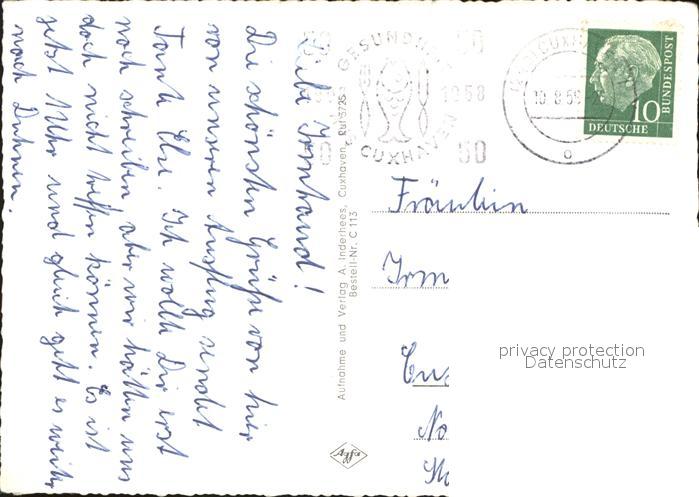 Liebe Irmtraud!
Die schönsten Grüße von hier
von unseren Ausflug sendet
Tante Else. Ich wollte Dir erst
noch schreiben aber wir hätten uns
doch nicht treffen können. Es ist
jetzt 1 Uhr und gleich geht es weiter
nach Duhnen.
Aufnahme und Verlag A. Inderhees, Cuxhaven, Ruf 5735
Bestell-Nr. C 113
Agfa
50 GESUNDHEIT 50
1908 1958
50 CUXHAVEN 50
CUXHAVEN
10.8.58
10
DEUTSCHE
BUNDESPOST
Fräulein
Irm
No
privacy protection
Datenschutz